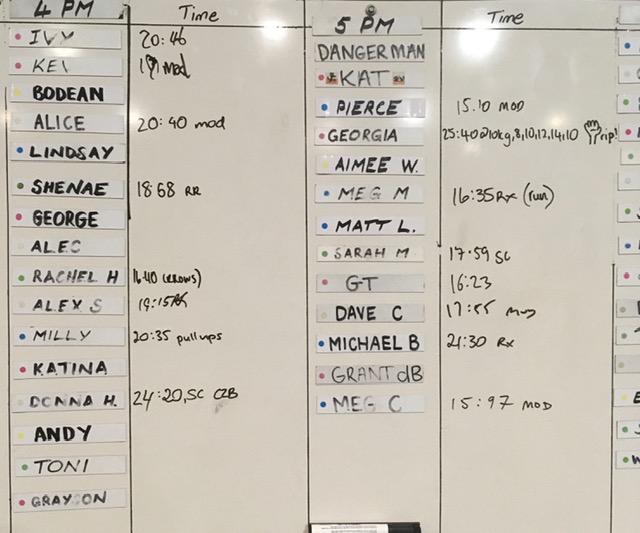 4 PM Time
IVY 20:46
KEV mod
BODEAN
ALICE 20:40 mod
LINDSAY
SHENAE 18:68 RR
GEORGE
ALEC
RACHEL H 16:40 (rows)
ALEX S 19:15
MILLY 20:35 pullups
KATINA
DONNA H. 24:20, SC C2B
ANDY
TONI
GRAYSON
5 PM Time
DANGERMAN
KAT
PIERCE 15.10 MOD
GEORGIA 25:40@10kg,8,10,12,14,10 rip!
AIMEE W.
MEG M 16:35 Rx (run)
MATT L.
SARAH M 17:59 SC
GT 16:23
DAVE C 17:55
MICHAEL B 21:30 Rx
GRANT dB
MEG C 15:97 MOD